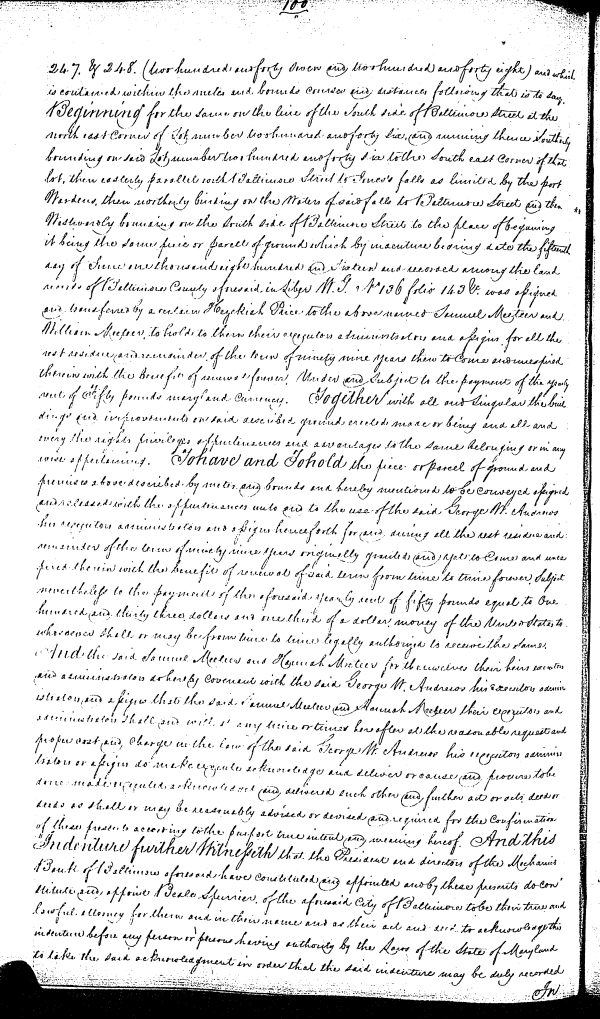 100
247. & 248. (two hundred and forty seven and two hundred and forty eight) and which
is contained within the metes and bounds courses and distances following that is to say.
Beginning for the same on the line of the South side of Baltimore Street at the
north east corner of Lot number two hundred and forty six, and running thence Southerly
bounding on said Lot number two hundred and forty six to the South east corner of that
lot, then easterly parallel with Baltimore Street to Jones's falls as limited by the port
Wardens, then northerly binding on the Waters of said falls to Baltimore Street and then
Westwardly bounding on the South side of Baltimore Street to the place of beginning
it being the same piece or parcell of ground which by indenture bearing date the fifteenth
day of June one thousand eight hundred and Sixteen and recorded among the land
records of Baltimore County aforesaid in Liber W.G. No 136 folio 143 &c was assigned
and transferred by a certain Hezekiah Price to the above named Samuel Meeteer and
William Meeteer, to hold to them their executors administrators and assigns, for all the
rest residue and remainder, of the term of ninety nine years then to Come and unexpired
therein with the benefit of renewal forever. Under and Subject to the payment of the yearly
rent of Fifty pounds maryland Currency. Together with all and Singular the buil
dings and improvements on said described ground erected made or being and all and
every the rights privileges appurtenances and advantages to the same belonging or in any
wise appertaining. To have and To hold the piece or parcel of ground and
premises above described by metes and bounds and hereby mentioned to be conveyed assigned
and released with the appurtenances unto and to the use of the said George W. Andrews
his executors administrators and assigns henceforth for and during all the rest residue and
remainder of the term of ninety nine years originally granted and yet to Come and unex
pired therein with the benefit of renewal of said term from time to time forever, Subject
nevertheless to the payment of the aforesaid yearly rent of fifty pounds equal to One
hundred and thirty three dollars and one third of a dollar, money of the United States to
whosoever Shall or may be from time to time legally authorized to receive the Same.
And the said Samuel Meeteer and Hannah Meeteer for themselves their heirs executors
and administrators do hereby Covenant with the said George W. Andrews his executors admin
istrators and assigns that the said Samuel Meeteer and Hannah Meeteer their executors and
administrators Shall and will at any time or times hereafter at the reasonable request and
proper cost and Charge in the law of the said George W. Andrews his executors adminis
trators or assigns do make execute acknowledge and deliver or cause and procure to be
done made executed acknowledged and delivered such other and further act or acts, deed or
deeds as shall or may be reasonably advised or devised and required for the Confirmation
of these presents according to the purport true intent and meaning hereof. And this
Indenture further Witnesseth that the President and directors of the Mechanics
Bank of Baltimore aforesaid have constituted and appointed and by these presents do con
stitute and appoint Beale Spurrier, of the aforesaid City of Baltimore to be their true and
lawful attorney for them and in their name and as their act and deed to acknowledge this
indenture before any person or persons having authority by the Laws of the State of Maryland
to take the said acknowledgment in order that the said indenture may be duly recorded
In